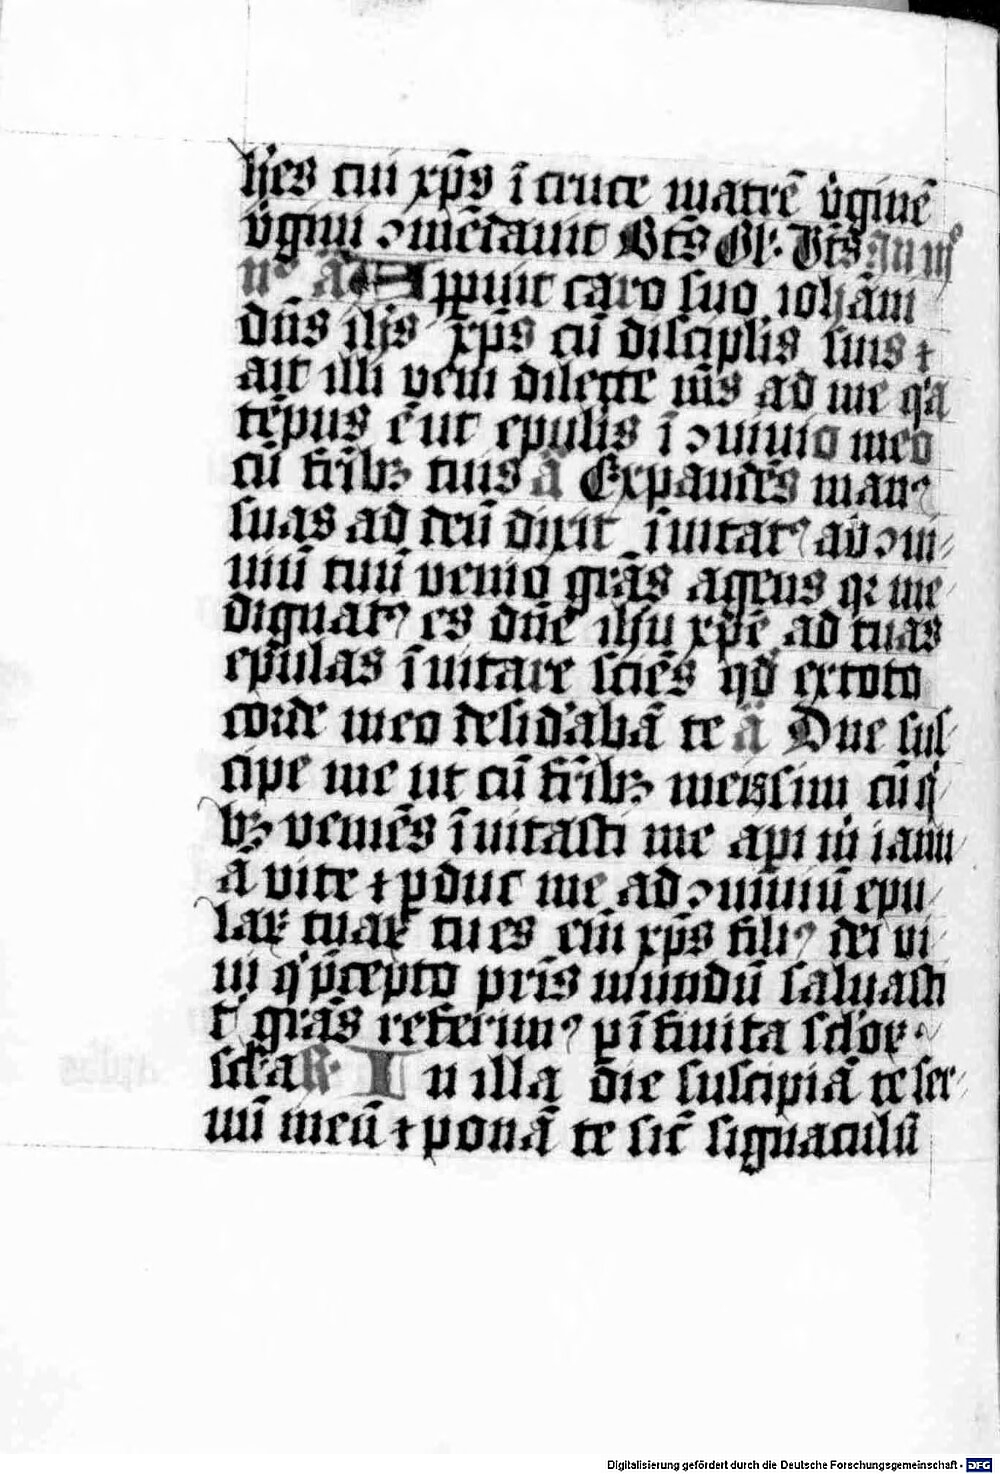 hēs cui xp̄s ī cruce matrē v̇ginē
v̇gini ↄmēdauit Bt̄s Gl' Vt̄s In iijº
nº a Appuit caro suo iohāni
dn̄s ih̄s xp̄s cū discipl̄is suis ⁊
ait illi veni dilecte m̄s ad me q̇a
tēpus ē ut epul̄is ī ↄuiuio meo
cū fr̄ibꝫ tuis a Expandēs manꝰ
suas ad deū dixit īuitatꝰ ad ↄui-
uiū tuū venio grās agens qꝛ me
dignatꝰ es dn̄e ih̄u xp̄e ad tuas
epulas īuitare sciēs qd̄ ex toto
corde meo desid'abā te a Dn̄e sus-
cipe me ut cū fr̄ibꝫ meis sim cū q'-
bꝫ veniēs īuitasti me api m̊ ianu-
ā vite ⁊ ꝑduc me ad ↄuiuiū epu-
laꝝ tuaꝝ tu es em̄ xp̄s filiꝰ dei vi-
ui q' p̄cepto pr̄is mundū saluasti
t' grās referimꝰ p īfinita sc'loꝝ
sc'la R' In illa die suscipiā te ser-
uū meū ⁊ ponā te sic̄ signaculū
Digitalisierung gefördert durch die Deutsche Forschungsgemeinschaft - DFG